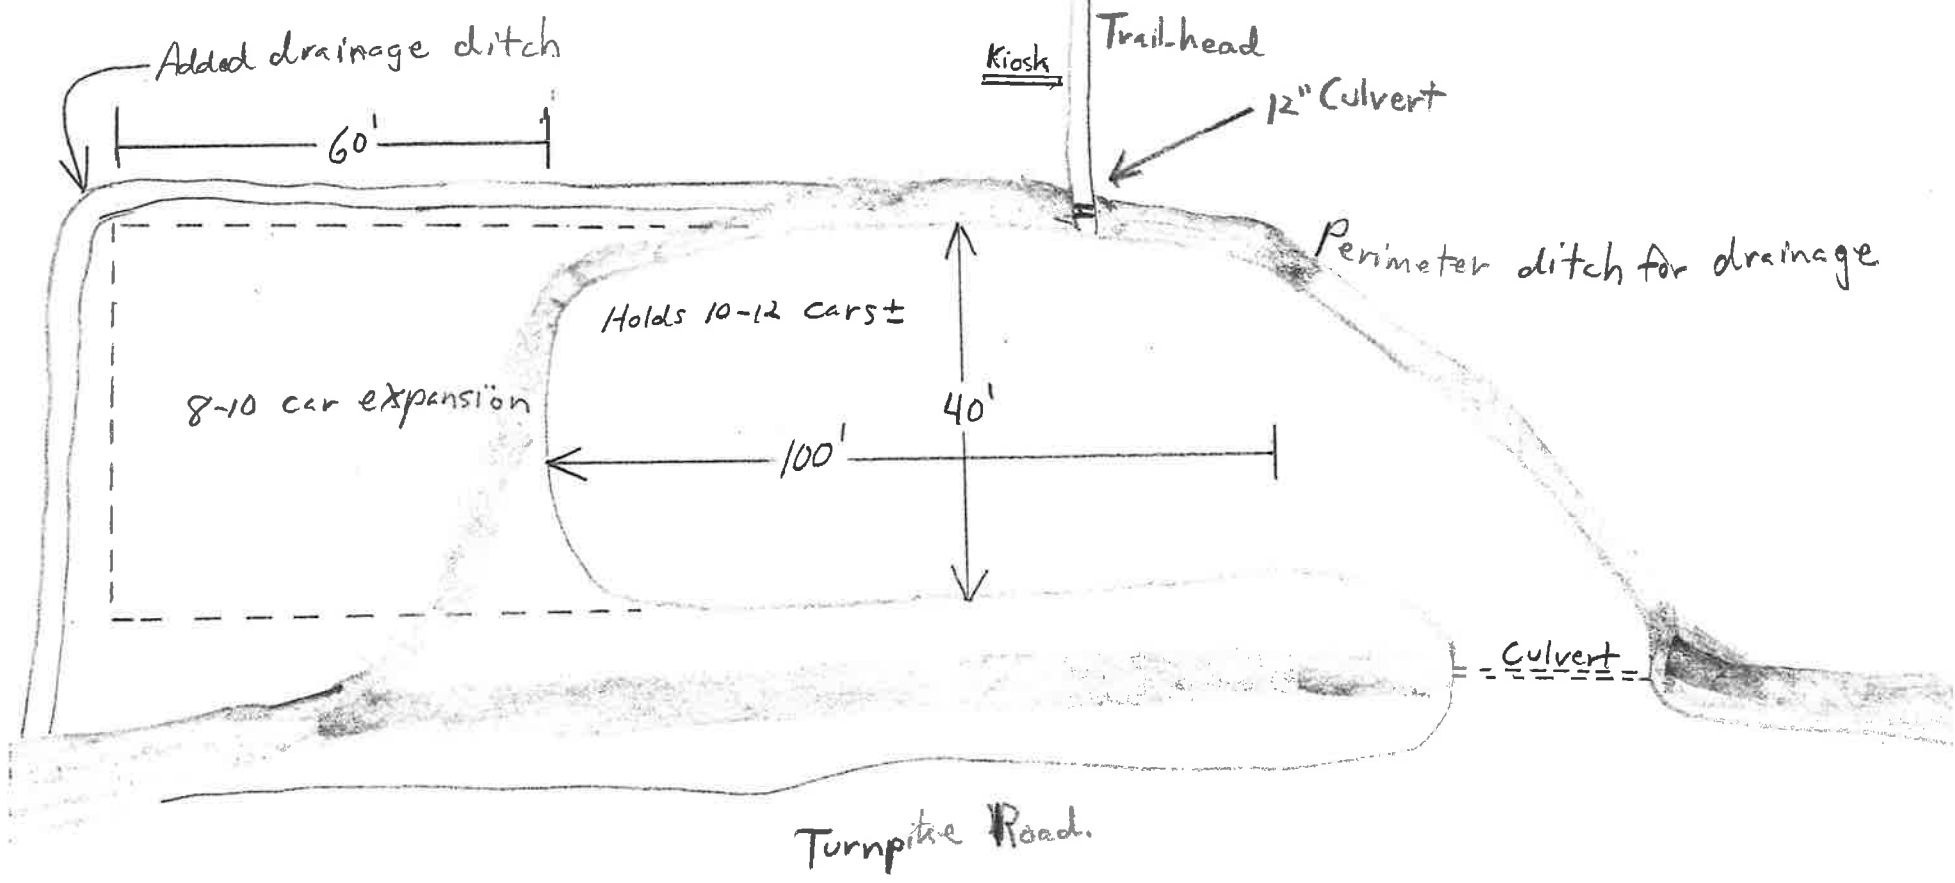 Added drainage ditch
Trail-head
Kiosk
12" Culvert
60'
Perimeter ditch for drainage
Holds 10-12 cars ±
8-10 car expansion
40'
100'
Culvert
Turnpike Road.